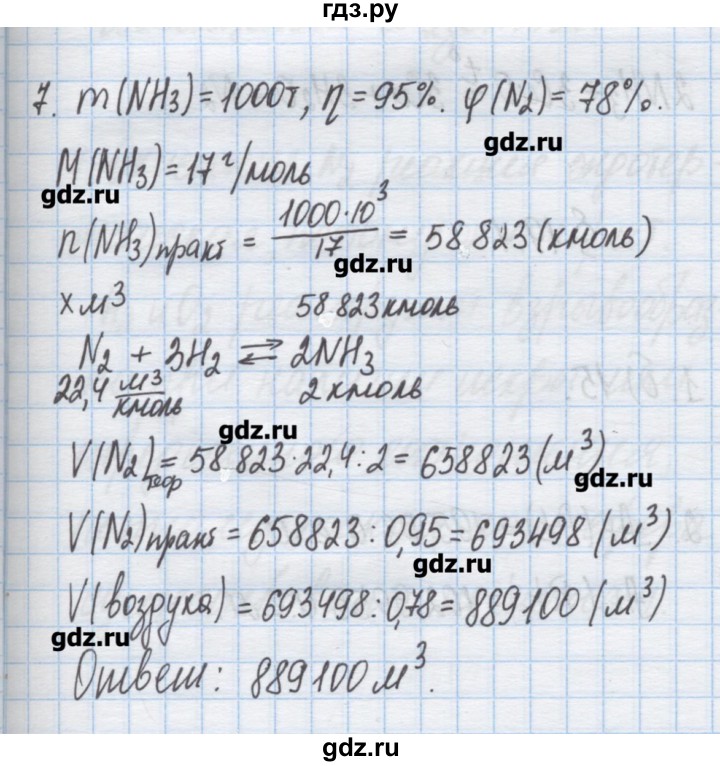 гдз.ру
7. m(NH₃) = 1000т, η = 95%. φ(N₂) = 78%.
gdz.ru
M(NH₃) = 17 г/моль
gdz.ru
n(NH₃)практ = 1000·10³/17 = 58 823 (кмоль)
gdz.ru
x м³ 58 823 кмоль
N₂ + 3H₂ ⇄ 2NH₃
22,4 м³/кмоль 2 кмоль
gdz.ru
V(N₂)теор = 58 823·22,4 : 2 = 658823 (м³)
gdz.ru
V(N₂)практ = 658823 : 0,95 = 693498 (м³)
gdz.ru
V(воздуха) = 693498 : 0,78 = 889100 (м³)
gdz.ru
Ответ: 889100 м³.
gdz.ru